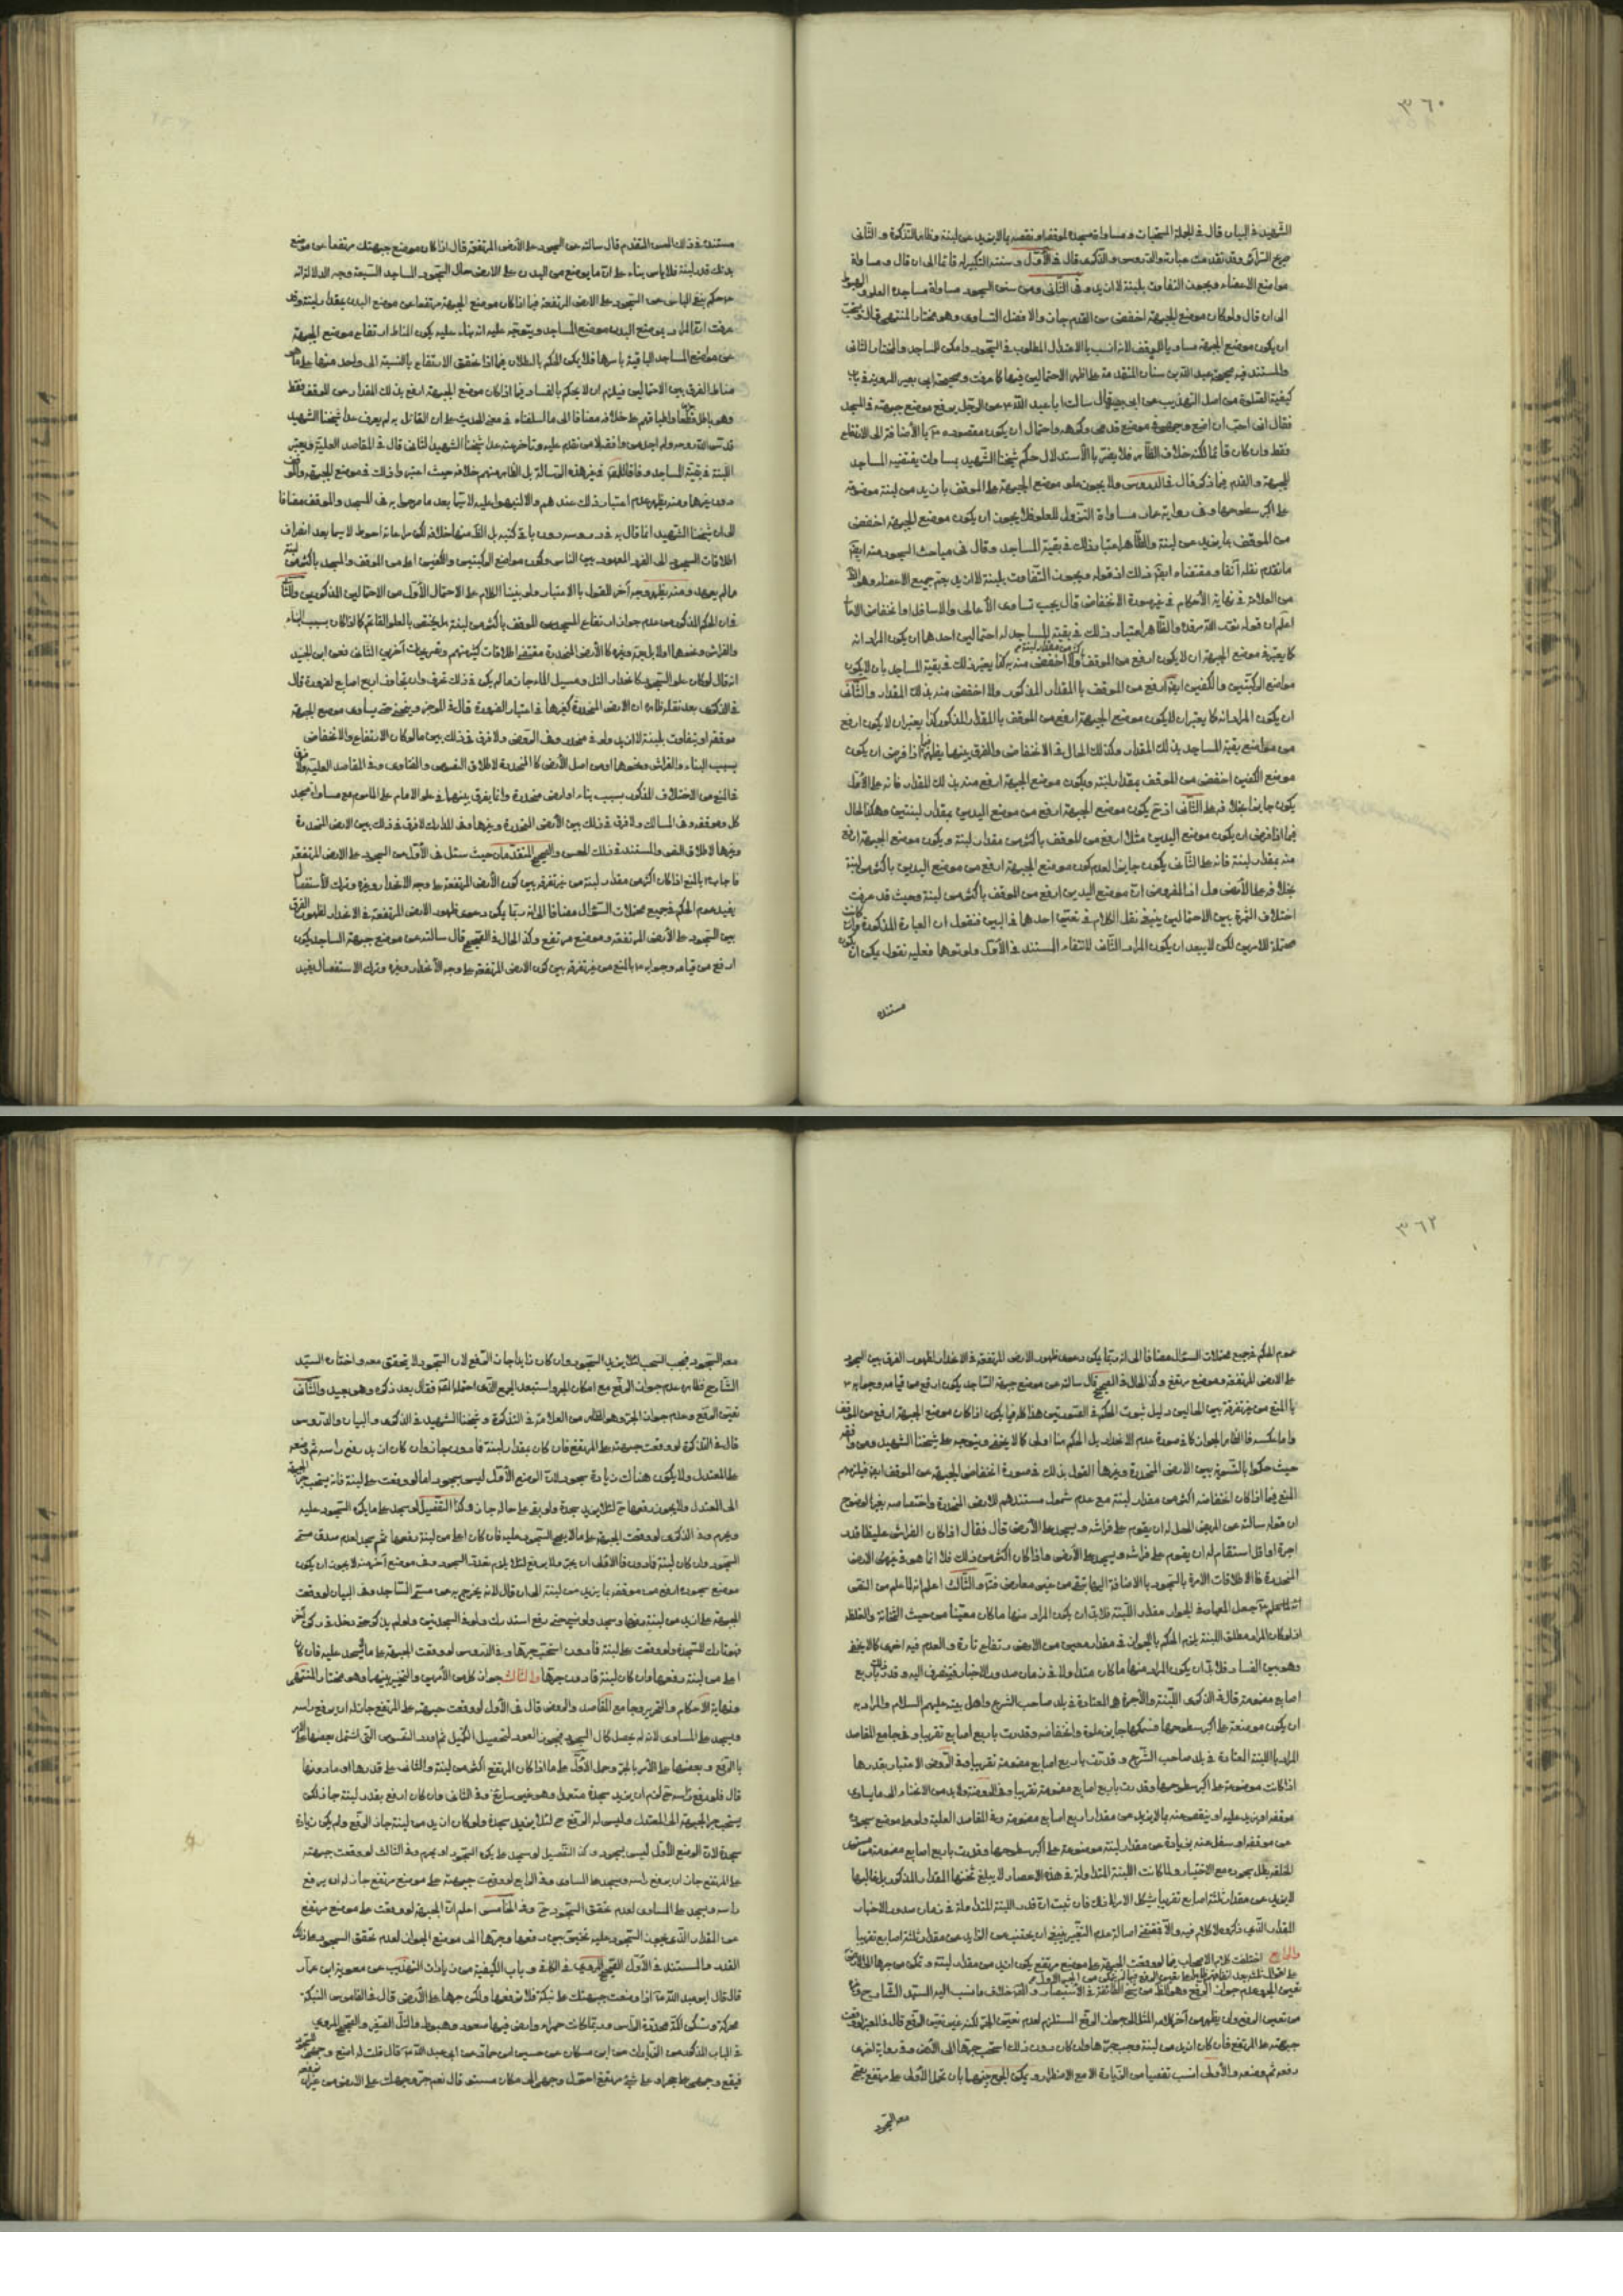 ٣٦٠
الشهيد في البيان قال في الجملة المستحبات ومساواة مسجده لموقفه او نقصه بما لا يزيد عن لبنة وظاهر التذكرة والثاني
صريح وقد تقدمت عبارة والدروس والذكرى قال في الأول وسننه التكبير له قائما الى ان قال ومساواة
مواضع الاعضاء ويجوز التفاوت بلبنة لا ازيد وفي الثاني ومن سنن السجود مساواة مساجده العلو والهبوط
الى ان قال ولو كان موضع الجبهة اخفض من القدم جاز والافضل التساوي وهو مختار المنتهى قال ويستحب
ان يكون موضع الجبهة مساويا للموقف لانه انسب بالاعتدال المطلوب في السجود وامكن للساجد والمختار الثاني
والمستند فيه صحيحة عبد الله بن سنان المتقدمة على اظهر الاحتمالين فيها كما عرفت وصحيحة ابي بصير المروية في باب
كيفية الصلوة من اصل التهذيب عن ابي بصير قال سالت ابا عبد الله ع عن الرجل يرفع موضع جبهته في المسجد
فقال اني احب ان اضع وجهي في موضع قدمي وكرهه واحتمال ان يكون مقصوده ع بالاضافة الى الارتفاع
فقط وان كان قائما لكنه خلاف الظاهر فلا يضر بالاستدلال حكم شيخنا الشهيد بمساواة بقية المساجد
للجبهة والقدم فيما ذكر قال في الدروس ولا يجوز علو موضع الجبهة على الموقف بازيد من لبنة موضوعة
على اكبر سطوحها وفي رواية عمار مساواة النزول للعلو فلا يجوز ان يكون موضع الجبهة اخفض
من الموقف بما يزيد عن لبنة والظاهر اعتبار ذلك في بقية المساجد وقال في مباحث السجود منه ايضا
ما تقدم نقله آنفا ومقتضاه ايضا ذلك اذ قوله ويجوز التفاوت بلبنة لا ازيد يعم جميع الاعضاء وهو الظاهر
من العلامة في نهاية الأحكام في غير صورة الانخفاض قال يجب تساوي الأعالي والاسافل او انخفاض الاعالي
اعلم ان قوله نور الله مرقده والظاهر اعتبار ذلك في بقية المساجد له احتمالين احدهما ان يكون المراد انه
كما يعتبر في موضع الجبهة ان لا يكون ارفع من الموقف ولا اخفض منه كذا يعتبر ذلك في بقية المساجد بان لا يكون
مواضع الركبتين والكفين ايضا ارفع من الموقف بالمقدار المذكور ولا اخفض منه بذلك المقدار والثاني
ان يكون المراد انه كما يعتبر ان لا يكون موضع الجبهة ارفع من الموقف بالمقدار المذكور كذا يعتبر ان لا يكون ارفع
من مواضع بقية المساجد بذلك المقدار وكذلك الحال في الانخفاض والفرق بينهما يظهر فيما اذا فرض ان يكون
موضع الكفين اخفض من الموقف بمقدار لبنة ويكون موضع الجبهة ارفع منه بذلك المقدار فانه على الأول
يكون جايزا بخلافه على الثاني اذ ح يكون موضع الجبهة ارفع من موضع اليدين بمقدار لبنتين وهكذا الحال
فيما اذا فرض ان يكون موضع اليدين مثلا ارفع من الموقف باكثر من مقدار لبنة ويكون موضع الجبهة ارفع
منه بمقدار لبنة فانه على الثاني يكون جايزا لعدم كون موضع الجبهة ارفع من موضع اليدين باكثر من لبنة
بخلافه على الأول اذ المفروض ان موضع اليدين ارفع من الموقف باكثر من لبنة وحيث قد عرفت
اختلاف الثمرة بين الاحتمالين ينبغي نقل الكلام في تعيين احدهما في البين فنقول ان العبارة المذكورة وان كانت
محتملة للامرين لكن لا يبعد ان يكون المراد الثاني لانتفاء المستند في الأول ولو توها فعليه نقول يمكن ان يكون
مستنده
مستنده في ذلك الحسن المتقدم قال سالته عن السجود على الأرض المرتفعة قال اذا كان موضع جبهتك مرتفعا عن موضع
بدنك قدر لبنة فلا باس بناء على ان ما يوضع من البدن على الارض حال السجود المساجد السبعة وجه الدلالة انه
ع حكم بنفي الباس عن السجود على الارض المرتفعة فيما اذا كان موضع الجبهة مرتفعا عن موضع البدن بمقدار لبنة وقد
عرفت ان المراد بموضع البدن موضع المساجد ويتوجه عليه انه بناء عليه يكون المناط ارتفاع موضع الجبهة
عن مواضع المساجد الباقية باسرها فلا يكون الحكم بالبطلان فيما اذا تحقق الارتفاع بالنسبة الى واحد منها على ما هو
مناط الفرق بين الاحتمالين فيلزم ان لا يحكم بالفساد فيما اذا كان موضع الجبهة ارفع بذلك المقدار من الموقف فقط
وهو باطل قطعا واطباقهم على خلافه مضافا الى ما اسلفناه في معنى الحديث على ان القائل به لم يعرف عدا شيخنا الشهيد
قدس الله روحه ولم اجد من وافقه لا من تقدم عليه وتأخر عنه عدا شيخنا الشهيد الثاني قال في المقاصد العلية ويعتبر
اللبنة في بقية المساجد وفاقا
دون غيرها ومنه يظهر عدم اعتبار ذلك عندهم والا لنبهوا عليه لا سيما بعد ما صرحوا به في المسجد والموقف مضافا
الى ان شيخنا الشهيد انما قال به في دروسه دون باقي كتبه بل الظاهر منها خلافه لكن مراعاته احوط لا سيما بعد انصراف
اطلاقات السجود الى الفرد المعهود بين الناس وكون مواضع الركبتين والكفين اعلى من الموقف والمسجد باكثر من لبنة
ما لم يعهد ومنه يظهر وجه آخر للقول بالاعتبار ولو بنينا الكلام على الاحتمال الأول من الاحتمالين المذكورين والثاني
فان الحكم المذكور من عدم جواز ارتفاع المسجد عن الموقف باكثر من لبنة هل يختص بالعلو القائم كما اذا كان بسبب البناء
والفراش ونحوها اولا بل يعم وغيره كالأرض المنحدرة مقتضى اطلاقات كثير منهم وتصريحات آخرين الثاني فعن ابن الجنيد
انه قال لو كان علو السجود كانحدار التل ومسيل الماء جاز ما لم يكن في ذلك تحرف وان تجاوز اربع اصابع لضرورة قال
في الذكرى بعد نقله ظاهره ان الارض المنحدرة كغيرها في اعتبار الضرورة قال في الموجز وينحني حتى يساوي موضع الجبهة
موقفه او يتفاوت بلبنة لا ازيد ولو في منحدر وفي الروض ولا فرق في ذلك بين ما لو كان الارتفاع والانخفاض
بسبب البناء والفراش ونحوها او من اصل الأرض كالمنحدرة لاطلاق النصوص والفتاوى وفي المقاصد العلية ولا فرق
في المنع من الاختلاف المذكور بسبب بناء او ارض منحدرة وانما يفرق بينهما في علو الامام على الماموم مع مساواة مسجد
كل وموقفه وفي المسالك ولا فرق في ذلك بين الأرض المنحدرة وغيرها وفي المدارك لا فرق في ذلك بين الارض المنحدرة
وغيرها لاطلاق النص والمستند في ذلك الحسن والصحيح المتقدمان حيث سئل في الأول عن السجود على الارض المرتفعة
فاجاب ع بالمنع اذا كان اكثر من مقدار لبنة من غير تفرقة بين كون الأرض المرتفعة على وجه الانحدار وغيره وترك الاستفصال
يفيد عموم الحكم في جميع محتملات السؤال مضافا الى انه ربما يمكن دعوى ظهور الارض المرتفعة في الانحدار لظهور الفرق
بين السجود على الأرض المرتفعة وموضع مرتفع وكذا الحال في الصحيح قال سالته عن موضع جبهة الساجد يكون
ارفع من قيامه وجوابه ع بالمنع من غير تفرقة بين كون الارض المرتفعة على وجه الانحدار وغيره وترك الاستفصال يفيد
٣٦٢
عموم الحكم في جميع محتملات السؤال مضافا الى انه ربما يمكن دعوى ظهور الارض المرتفعة في الانحدار لظهور الفرق بين السجود
على الارض المرتفعة وموضع مرتفع وكذا الحال في الصحيح قال سالته عن موضع جبهة الساجد يكون ارفع من قيامه وجوابه ع
بالمنع من غير تفرقة بين الحالين دليل ثبوت الحكم في الصورتين هذا كله فيما يكون اذا كان موضع الجبهة ارفع من الموقف
واما عكسه فالظاهر الجواز كما في صورة عدم الانحدار بل الحكم هنا اولى كما لا يخفى ويتوجه على شيخنا الشهيد ومن وافقه
حيث حكموا بالتسوية بين الارض المنحدرة وغيرها القول بذلك في صورة انخفاض الجبهة عن الموقف ايضا فيلزمهم
المنع فيما اذا كان انخفاضه اكثر من مقدار لبنة مع عدم شمول مستندهم للارض المنحدرة واختصاصه بغيرها لوضوح
ان قوله سالته عن المريض ايحل له ان يقوم على فراشه ويسجد على الأرض قال فقال اذا كان الفراش غليظا قدر
اجرة او اقل استقام له ان يقوم على فراشه ويسجد على الأرض واذا كان اكثر من ذلك فلا انما هو في غير الارض
المنحدرة فالاطلاقات الامرة بالسجود بالاضافة اليها تبقى من غير معارض فتأمل والثالث اعلم انه لما علم من النص
جعل المعيار في الجواز مقدار اللبنة فلا بد ان يكون المراد منها ما كان معينا من حيث الثخانة والغلظة
اذ لو كان المراد مطلق اللبنة يلزم الحكم بالجواز في مقدار معين من الارض رتفاع تارة والعدم فيه اخرى كما لا يخفى
وهو بين الفساد فلا بد ان يكون المراد منها ما كان متداولا في زمان صدور الاخبار فينصرف اليه وقدرت باربع
اصابع مضمومة قال في الذكرى اللبنة والأجرة هي المعتادة في بلد صاحب الشرع واهل بيته عليهم السلام والمراد به
ان يكون موضعة على اكبر سطوحها فسمكها جايز علوه وانخفاضه وقدرت باربع اصابع تقريبا وفي جامع المقاصد
المراد باللبنة المعتادة في بلد صاحب الشرع وقدرت باربع اصابع مضمومة تقريبا وفي الروض الاعتبار بقدرها
اذا كانت موضوعة على اكبر سطوحها وقدرت باربع اصابع مضمومة تقريبا وفي الروضة ولا بد من الانحناء الى ما يساوي
موقفه او يزيد عليه او ينقص عنه بما لا يزيد عن مقدار اربع اصابع مضمومة وفي المقاصد العلية ولو علا موضع سجوده
عن موقفه او سفل عنه بزيادة عن مقدار لبنة موضوعة على اكبر سطوحها وقدرت باربع اصابع مضمومة من مستوى
الخلقة بطل سجوده مع الاختيار ولما كانت اللبنة المتداولة في هذه الاعصار لا يبلغ ثخنها المقدار المذكور بل غالبها
لا يزيد عن مقدار ثلثة اصابع تقريبا يشكل الامر لذلك فان ثبت ان قدر اللبنة المتداولة في زمان صدور الاخبار
المقدار الذي ذكروه لا كلام فيه والا فمقتضى اصالة عدم التغير ينبغي ان يجتنب عن الزايد عن مقدار ثلثة اصابع تقريبا
والرابع اختلفت كلمة الاصحاب فيما لو وقعت الجبهة على موضع مرتفع يكون ازيد من مقدار لبنة وتمكن من جرها الى
على اقوال
تعيين الجر وعدم جواز الرفع وهو الظاهر من شيخ الطائفة في الاستبصار خلاف ما نسب اليه السيد الشارح
من تعيين الرفع وان يظهر من آخر كلامه الميل الى جواز الرفع المستلزم لعدم تعيين الجر لكنه غير تعيين الرفع قال في المعتبر لو وقعت
جبهته على المرتفع فان كان ازيد من لبنة وجب جرها وان كان دون ذلك استحب جرها الى الارض وفي رواية اخرى
رفعه ثم وضعه والأولى انسب تفصيا من الزيادة الا مع الاضطرار ويمكن الجمع بينهما بان تحمل الأولى على مرتفع يصح
معه السجود
معه السجود فيجب السحب لئلا يزيد السجود وان كان زايدا جاز الرفع لان السجود لا يتحقق معه واختاره السيد
الشارح فظاهره عدم جواز الرفع مع امكان الجر واستبعد الجمع الذي احتمله المص فقال بعد ذكره وهو بعيد والثاني
تعين الرفع وعدم جواز الجر وهو الظاهر من العلامة في التذكرة وشيخنا الشهيد في الذكرى والبيان والدروس
قال في التذكرة لو وقعت جبهته على المرتفع فان كان بمقدار لبنة فما دون جاز وان كان ازيد رفع راسه ثم وضعه
على المعتدل ولا يكون هناك زيادة سجود لان الوضع الأول ليس بسجود اما لو وقعت على لبنة فانه يستحب جر الجبهة
الى المعتدل ولا يجوز رفعها ح لئلا يزيد سجدة ولو بقي على حاله جاز وكذا التفصيل لو سجد على ما يكره السجود عليه
ويحرم وفي الذكرى لو وقعت الجبهة على ما لا يصح السجود عليه فان كان اعلى من لبنة رفعها ثم سجد لعدم صدق مسمى
السجود وان كان لبنة فما دون فالاولى ان يجر ولا يرفع لئلا يلزم تعدد السجود وفي موضع آخر منه لا يجوز ان يكون
موضع سجوده ارفع من موقفه بما يزيد عن لبنة الى ان قال لانه يخرج به عن مسمى الساجد وفي البيان لو وقعت
الجبهة على ازيد من لبنة رفعها وسجد ولو نسي حتى رفع استدرك ولو في السجدتين ولو لم يذكر حتى دخل في ركن آخر
فهو تارك للسجدة ولو وقعت على لبنة فما دون استحب جرها وفي الدروس لو وقعت الجبهة على ما يسجد عليه فان كان
اعلى من لبنة رفعها وان كان لبنة فما دون جرها والثالث جواز كل من الأمرين والتخيير بينهما وهو مختار المنتهى
ونهاية الاحكام والتحرير وجامع المقاصد والروض قال في الأول لو وقعت جبهته على المرتفع جاز له ان يرفع راسه
ويسجد على المساوي لانه لم يحصل كمال السجود فيجوز العود لتحصيل الكمال ثم اورد النصوص التي اشتمل بعضها على الأمر
بالرفع وبعضها على الأمر بالجر وحمل الأول على ما اذا كان المرتفع اكثر من لبنة والثاني على قدرها او ما دونها
قال فلو رفع راسه ح لزم ان يزيد سجدة متعمدا وهو غير سايغ وفي الثاني وان كان ارفع بقدر لبنة جاز لكن
يستحب جر الجبهة الى المعتدل وليس له الرفع ح لئلا يزيد سجدة ولو كان ازيد من لبنة جاز الرفع ولم يكن زيادة
سجدة لان الوضع الأول ليس بسجود وكذا التفصيل لو سجد على ما يكره السجود او يحرم وفي الثالث لو وقعت جبهته
على المرتفع جاز ان يرفع راسه ويسجد على المساوي وفي الرابع لو وقعت جبهته على موضع مرتفع جاز له ان يرفع
راسه ويسجد على المساوي لعدم تحقق السجود ح وفي الخامس اعلم ان الجبهة لو وقعت على موضع مرتفع
عن المقدار الذي يجوز السجود عليه تخير بين رفعها وجرها الى موضع الجواز لعدم تحقق السجود على ذلك
القدر والمستند في الأول الصحيح المروي في الكافي وباب الكيفية من زيادات التهذيب عن معوية بن عمار
قال قال ابو عبد الله ع اذا وضعت جبهتك على نبكة فلا ترفعها ولكن جرها على الأرض قال في القاموس النبكة
محركة وتسكن اكمة محددة الراس وربما كانت حمراء وارض فيها صعود وهبوط والتل الصغير والصحيح المروي
في الباب المذكور من الزيادات عن ابن مسكان عن حسين بن حماد عن ابي عبد الله ع قال قلت له اضع وجهي للسجود
فيقع وجهي على حجر او على شيء مرتفع احول وجهي الى مكان مستو قال نعم جر وجهك على الارض من غير ان ترفعه